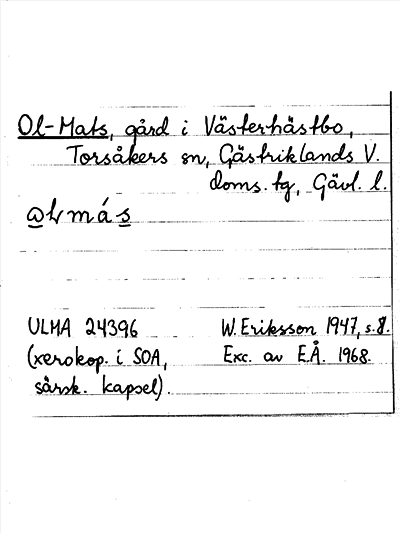 Ol-Mats, gård i Västerhästbo,
Torsåkers sn, Gästriklands V.
doms. tg, Gävl. l.
ɷLmás
ULMA 24396
(xerokop. i SOA,
särsk. kapsel).
W. Eriksson 1947, s. 8.
Exc. av E.Å. 1968.